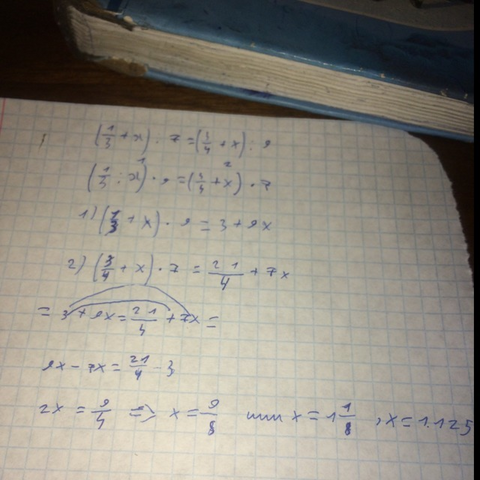 (1/3 + x) : 7 = (3/4 + x) : 9
(1/3 + x) · 9 = (3/4 + x) · 7
1) (1/3 + x) · 9 = 3 + 9x
2) (3/4 + x) · 7 = 21/4 + 7x
= 3 + 9x = 21/4 + 7x =
9x - 7x = 21/4 - 3
2x = 9/4 => x = 9/8 или x = 1 1/8 , x = 1.125